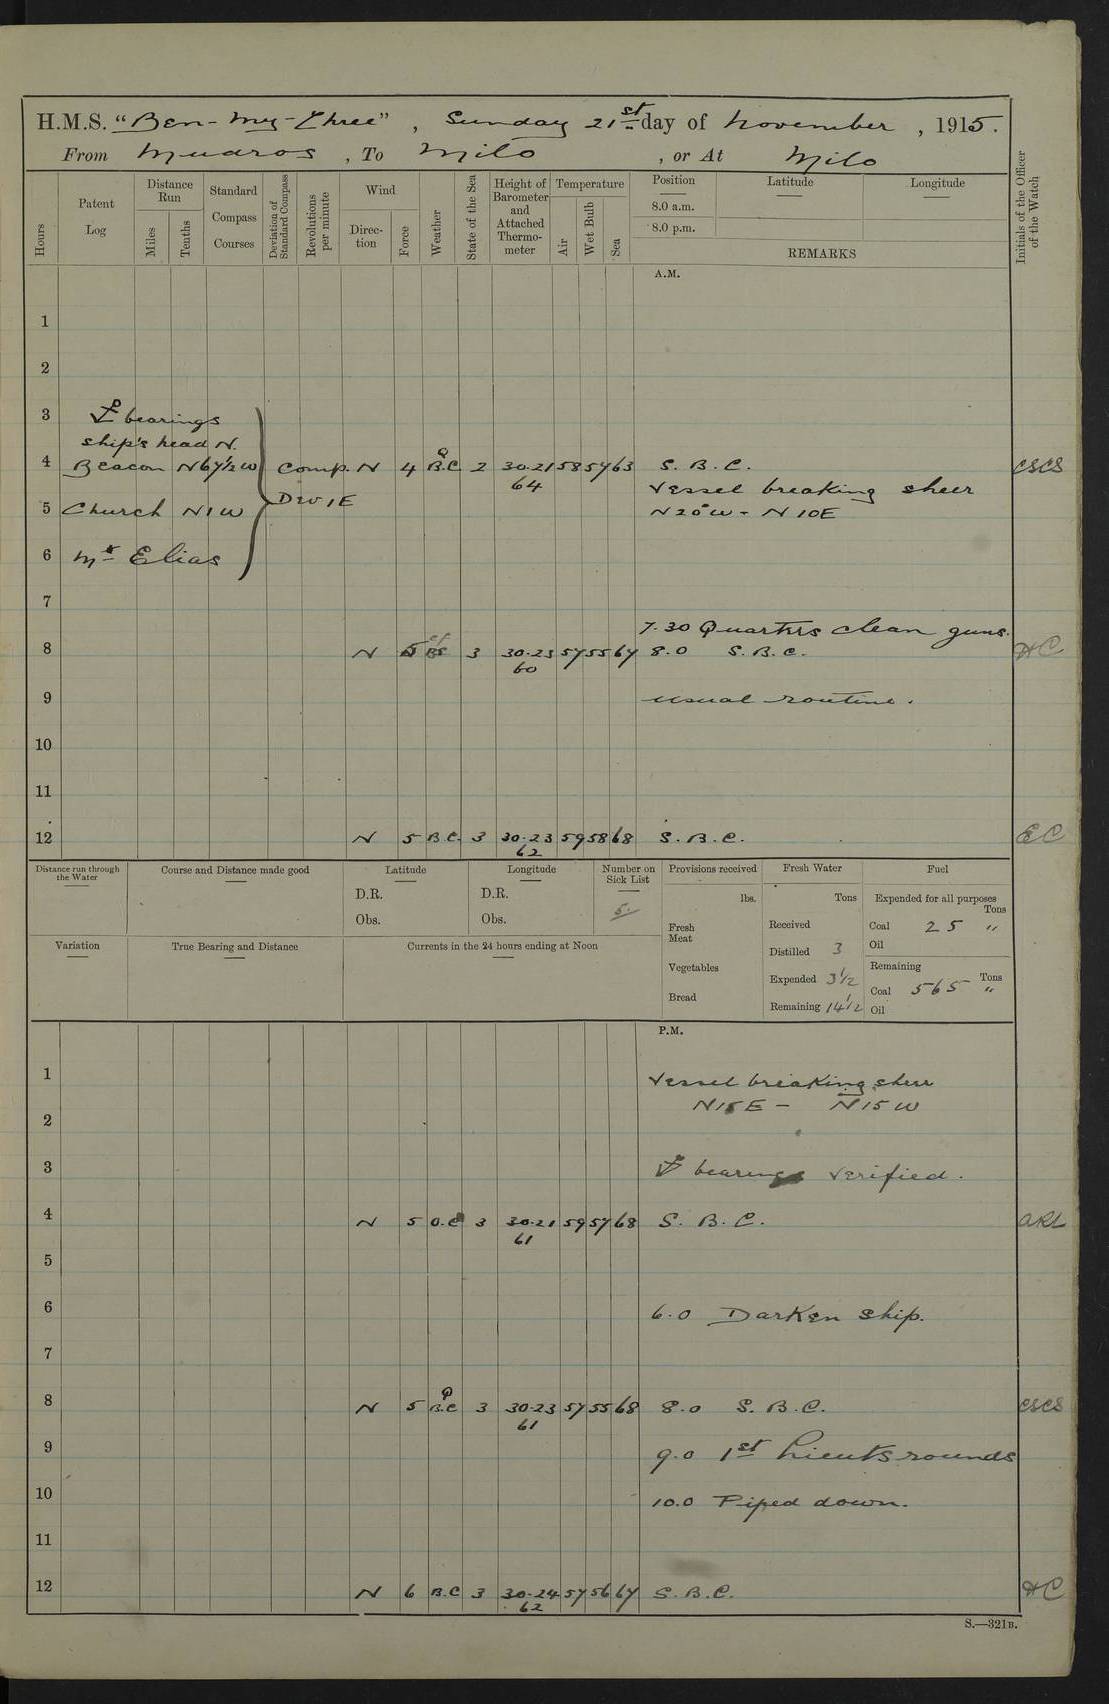 H.M.S. "Ben-my-Chree", Sunday 21st day of November, 1915.
From Mudros, To Milo, or At Milo
Hours
Patent Log
Distance Run
Miles
Tenths
Standard Compass Courses
Deviation of Standard Compass
Revolutions per minute
Wind
Direction
Force
Weather
State of the Sea
Height of Barometer and Attached Thermometer
Temperature
Air
Wet Bulb
Sea
Position
8.0 a.m.
8.0 p.m.
Latitude
Longitude
REMARKS
Initials of the Officer of the Watch
A.M.
1
2
3 ⚓ bearings
ship's head N.
4 Beacon N 67½ W Comp. N 4 Q B.C. 2 30.21 58 57 63 S.B.C. CSCS
64 Vessel breaking sheer
Dev 1E
5 Church N 1 W N 20° W - N 10 E
6 Mt Elias
7
7.30 Quarters clean guns.
8 N 5 3 30.23 57 55 67 8.0 S.B.C. HC
60
9 usual routine.
10
11
12 N 5 B.C. 3 30.23 59 58 68 S.B.C. EC
62
Distance run through the Water
Course and Distance made good
Latitude
D.R.
Obs.
Longitude
D.R.
Obs.
Number on Sick List
5.
Provisions received
lbs.
Fresh Meat
Vegetables
Bread
Fresh Water
Tons
Received
Distilled 3
Expended 3½
Remaining 14½
Fuel
Expended for all purposes
Tons
Coal 25 "
Oil
Remaining
Tons
Coal 565 "
Oil
Variation
True Bearing and Distance
Currents in the 24 hours ending at Noon
P.M.
1 Vessel breaking sheer
N 15 E - N 15 W
2
3 ⚓ bearings verified.
4 N 5 O.C 3 30.21 59 57 68 S.B.C. ARL
61
5
6 6.0 Darken ship.
7
8 N 5 Q B.C 3 30.23 57 55 68 8.0 S.B.C. CSCS
61
9 9.0 1st Lieuts rounds
10 10.0 Piped down.
11
12 N 6 B.C 3 30.24 57 56 67 S.B.C. HC
62
S.—321B.